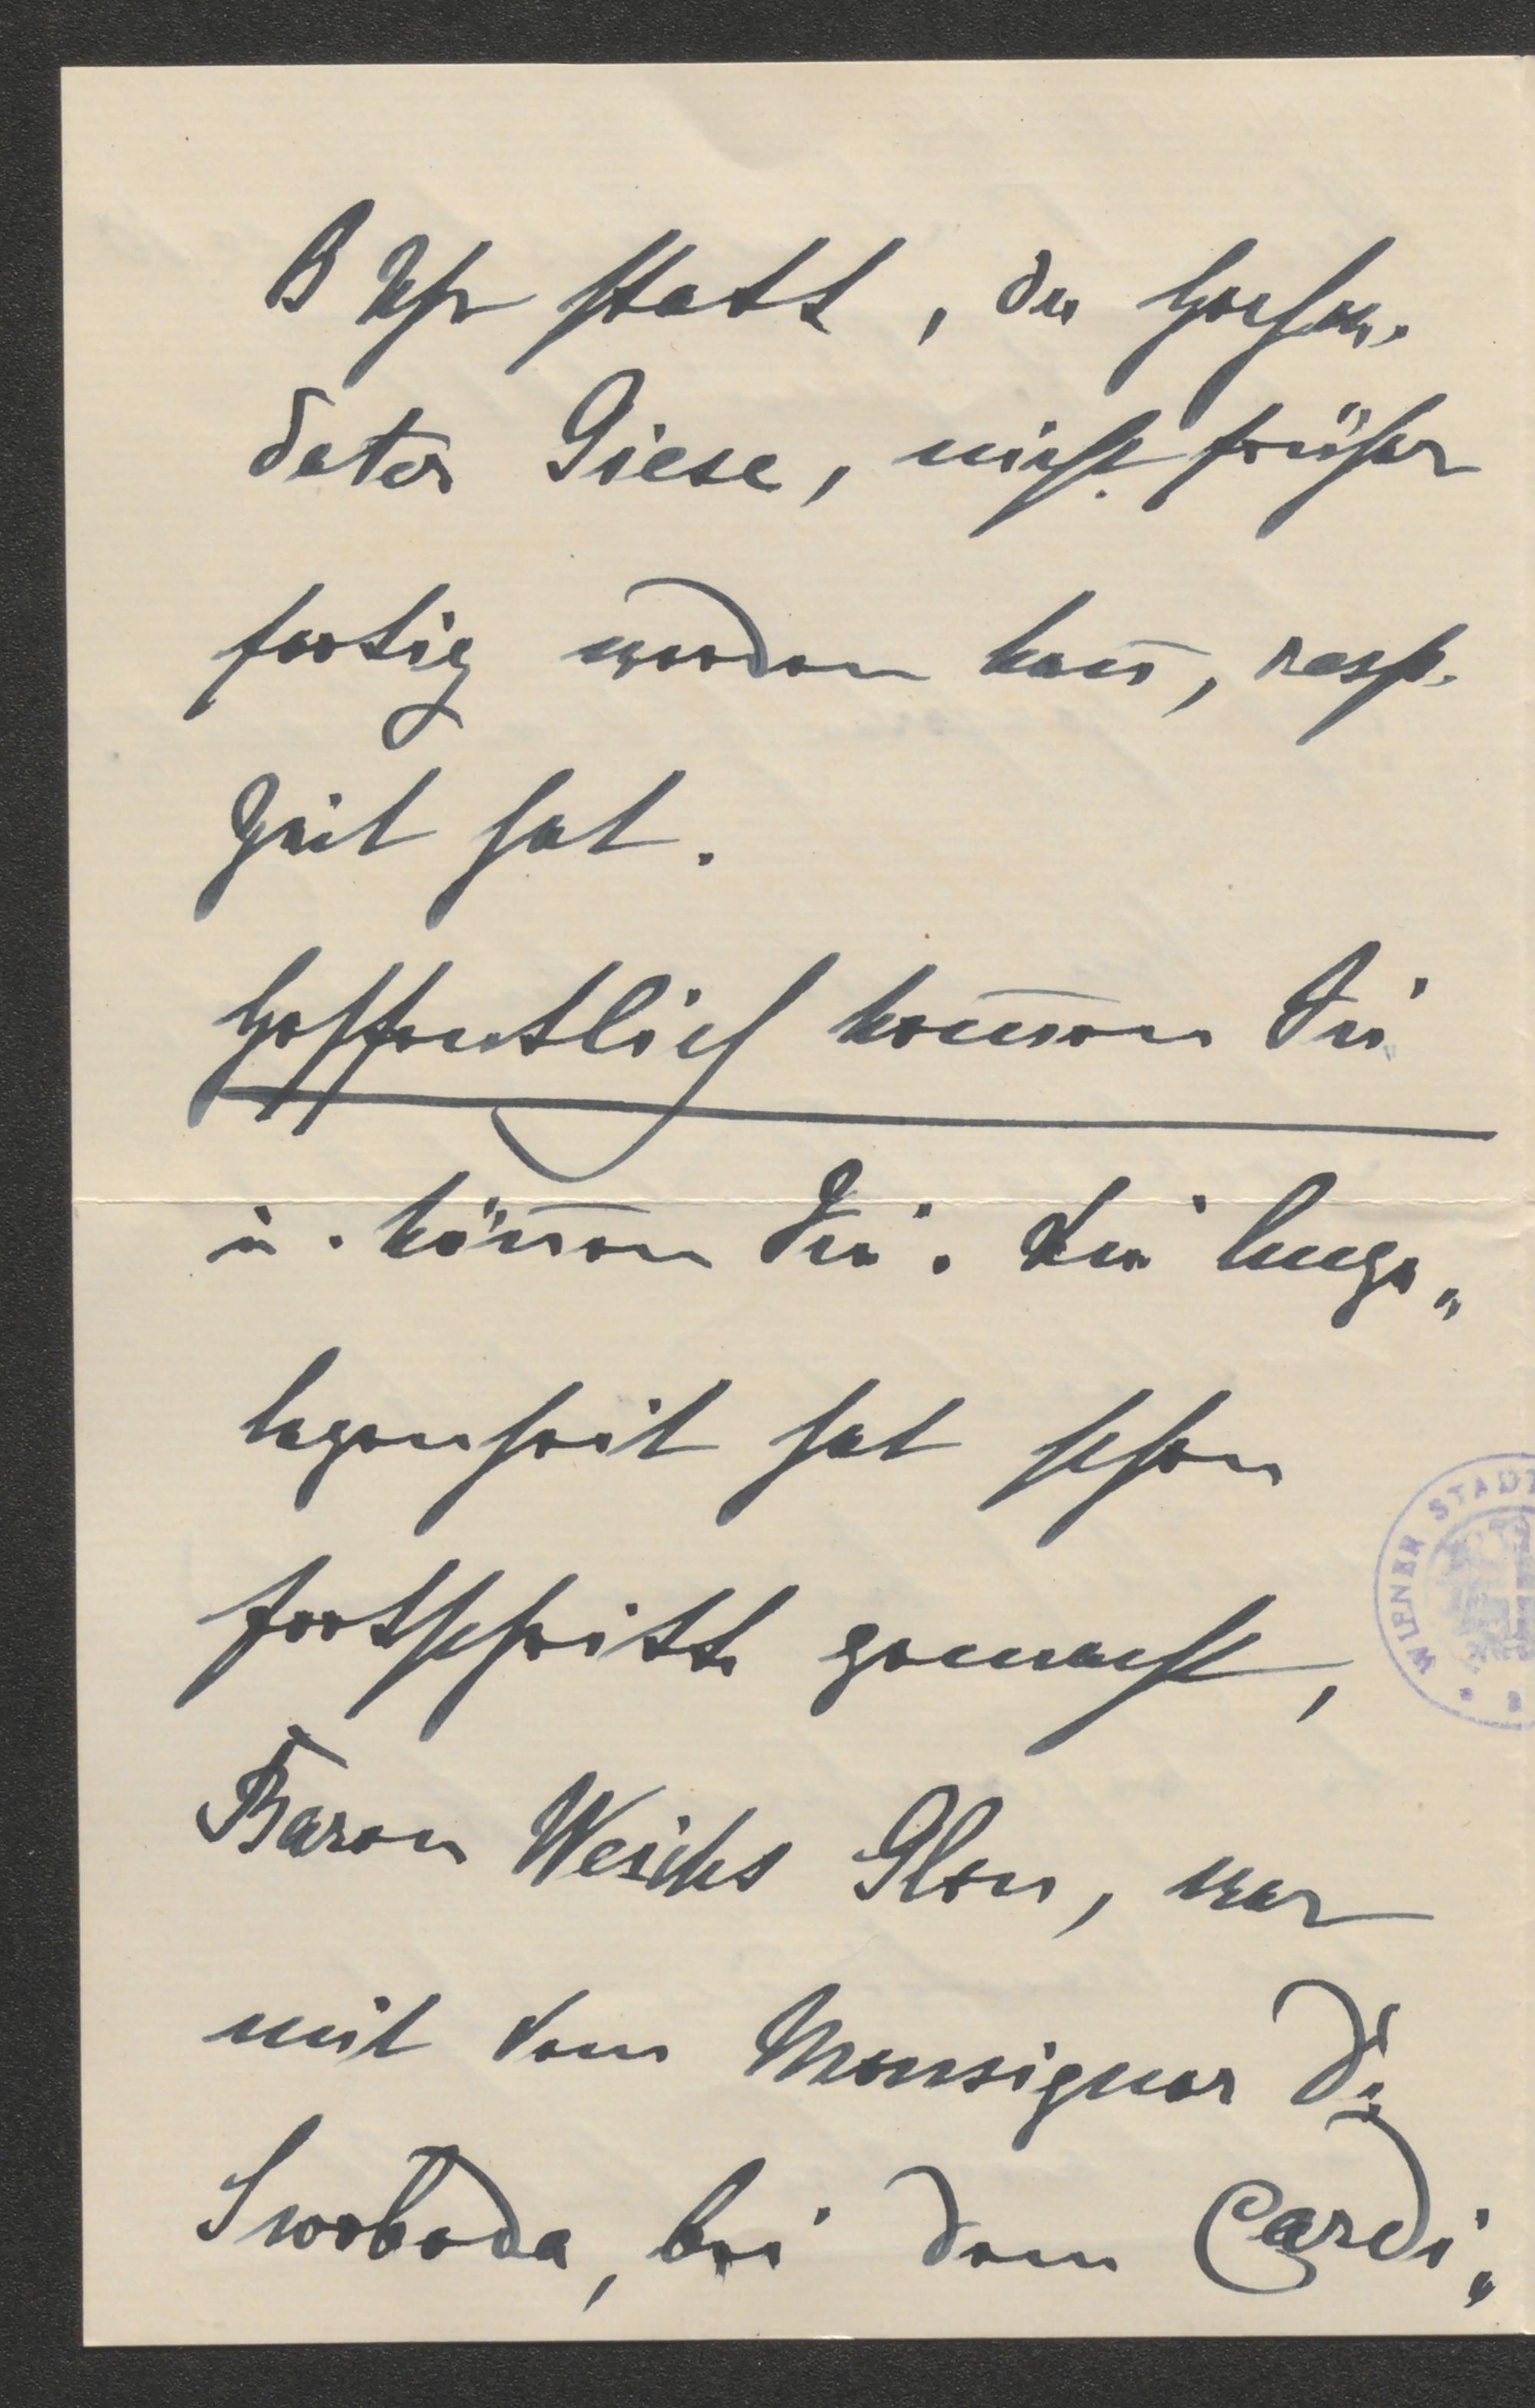 8 Uhr statt, da Hofsu.
dator Giese, nicht früher
fertig werden kan̄, resp.
Zeit hat.
Hoffentlich kom̄en Sie
u. kön̄en Sie. Die Ange„
legenheit hat schon
Fortschritte gemacht,
Baron Weichs Glon, war
mit dem Monsignor Dr
Swoboda, bei dem Cardi„
WIENER STADT